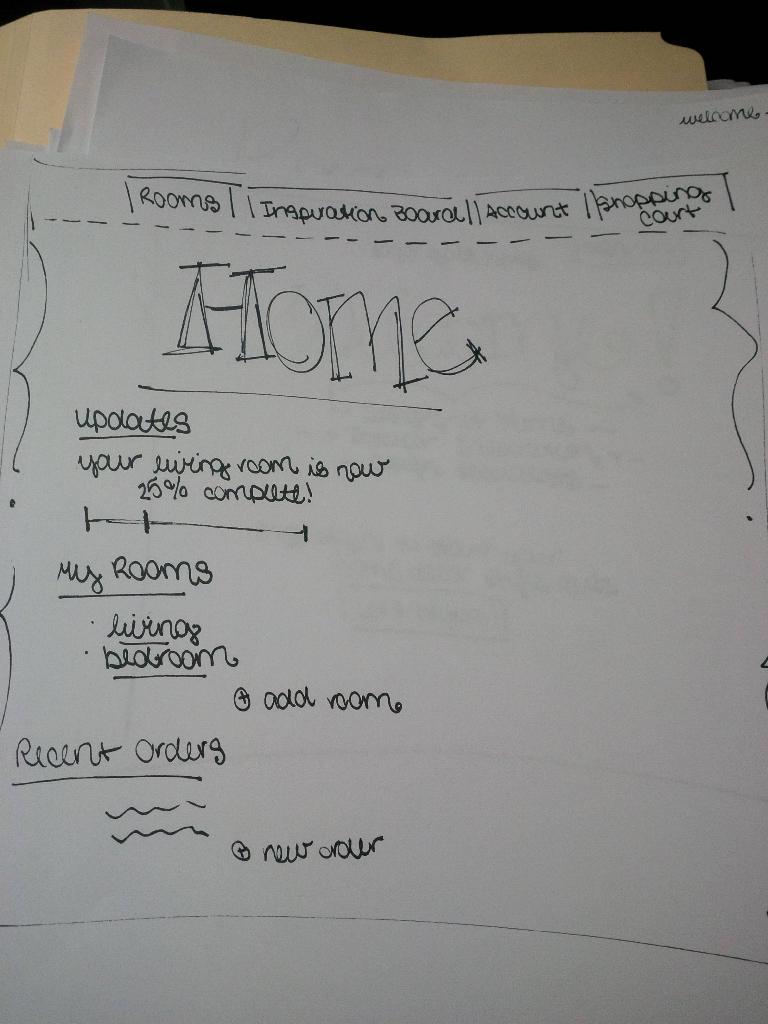 welcome
Rooms Inspiration Board Account Shopping
Cart
Home
updates
your living room is now
25% complete!
My Rooms
living
bedroom
+ add room
Recent Orders
+ new order